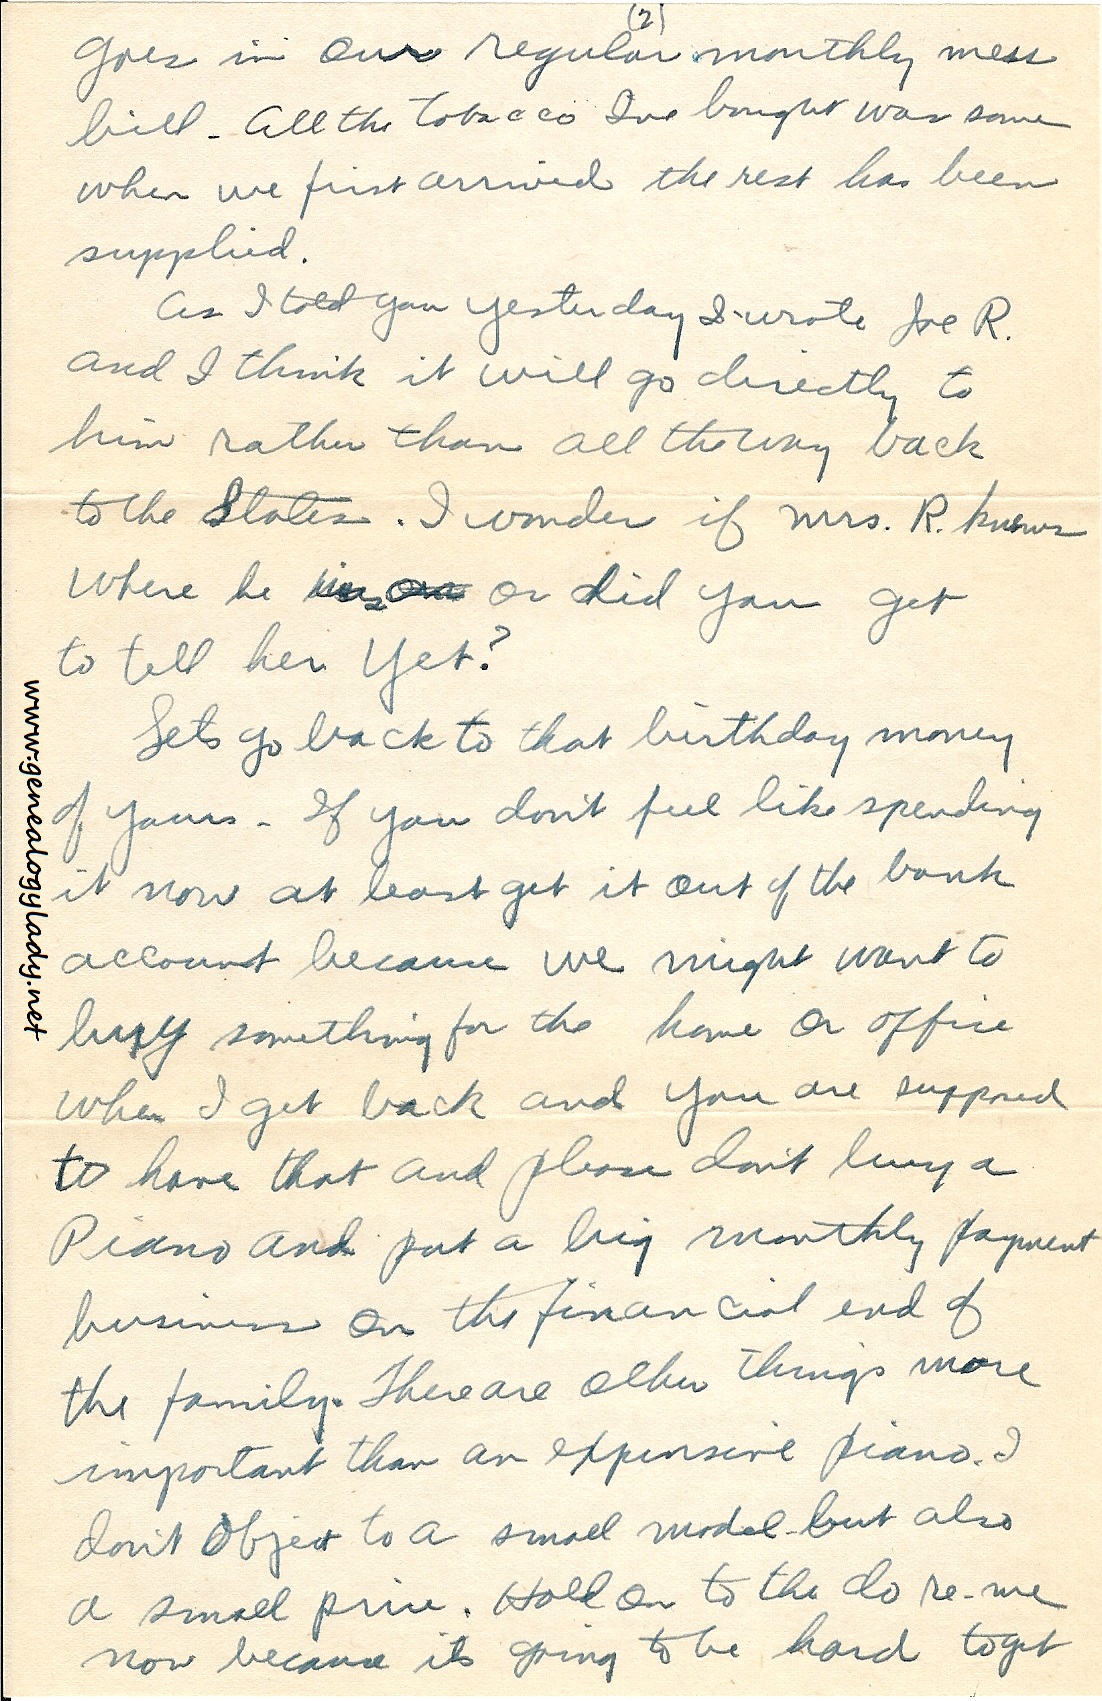 (2)
goes in our regular monthly mess
bill - All the Tobacco I've bought was some
when we first arrived the rest has been
supplied.
As I told you yesterday I wrote Joe R.
and I think it will go directly to
him rather than all the way back
to the States. I wonder if Mrs. R. knows
where he is or did you get
to tell her yet?
Lets go back to that birthday money
of yours - If you don't feel like spending
it now at least get it out of the bank
account because we might want to
buy something for the home or office
when I get back and you are supposed
to have that and please don't buy a
Piano and put a big monthly payment
business on the financial end of
the family. There are other things more
important than an expensive piano. I
don't object to a small model but also
a small price. Hold on to the do re-me
now because its going to be hard to get
www.genealogylady.net